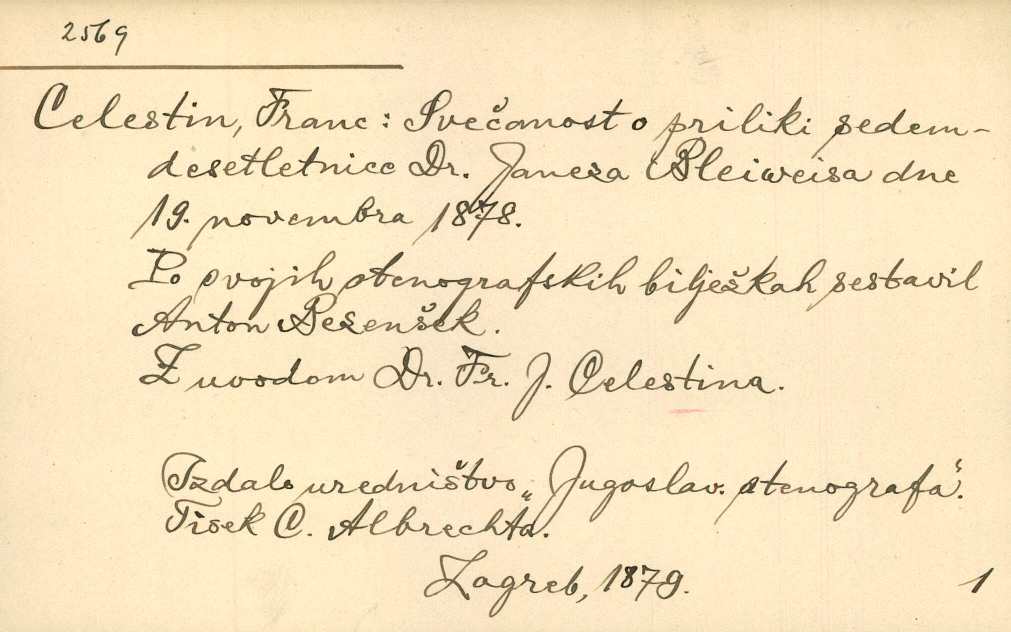 2569
Celestin, Franc: Svečanost o priliki sedem-
desetletnice Dr. Janeza Bleiweisa dne
19. novembra 1878.
Po svojih stenografskih bilježkah sestavil
Anton Bezenšek.
Z uvodom Dr. Fr. J. Celestina.
Izdalo uredništvo „Jugoslav. stenografa“.
Tisek C. Albrechta.
Zagreb, 1879.
1